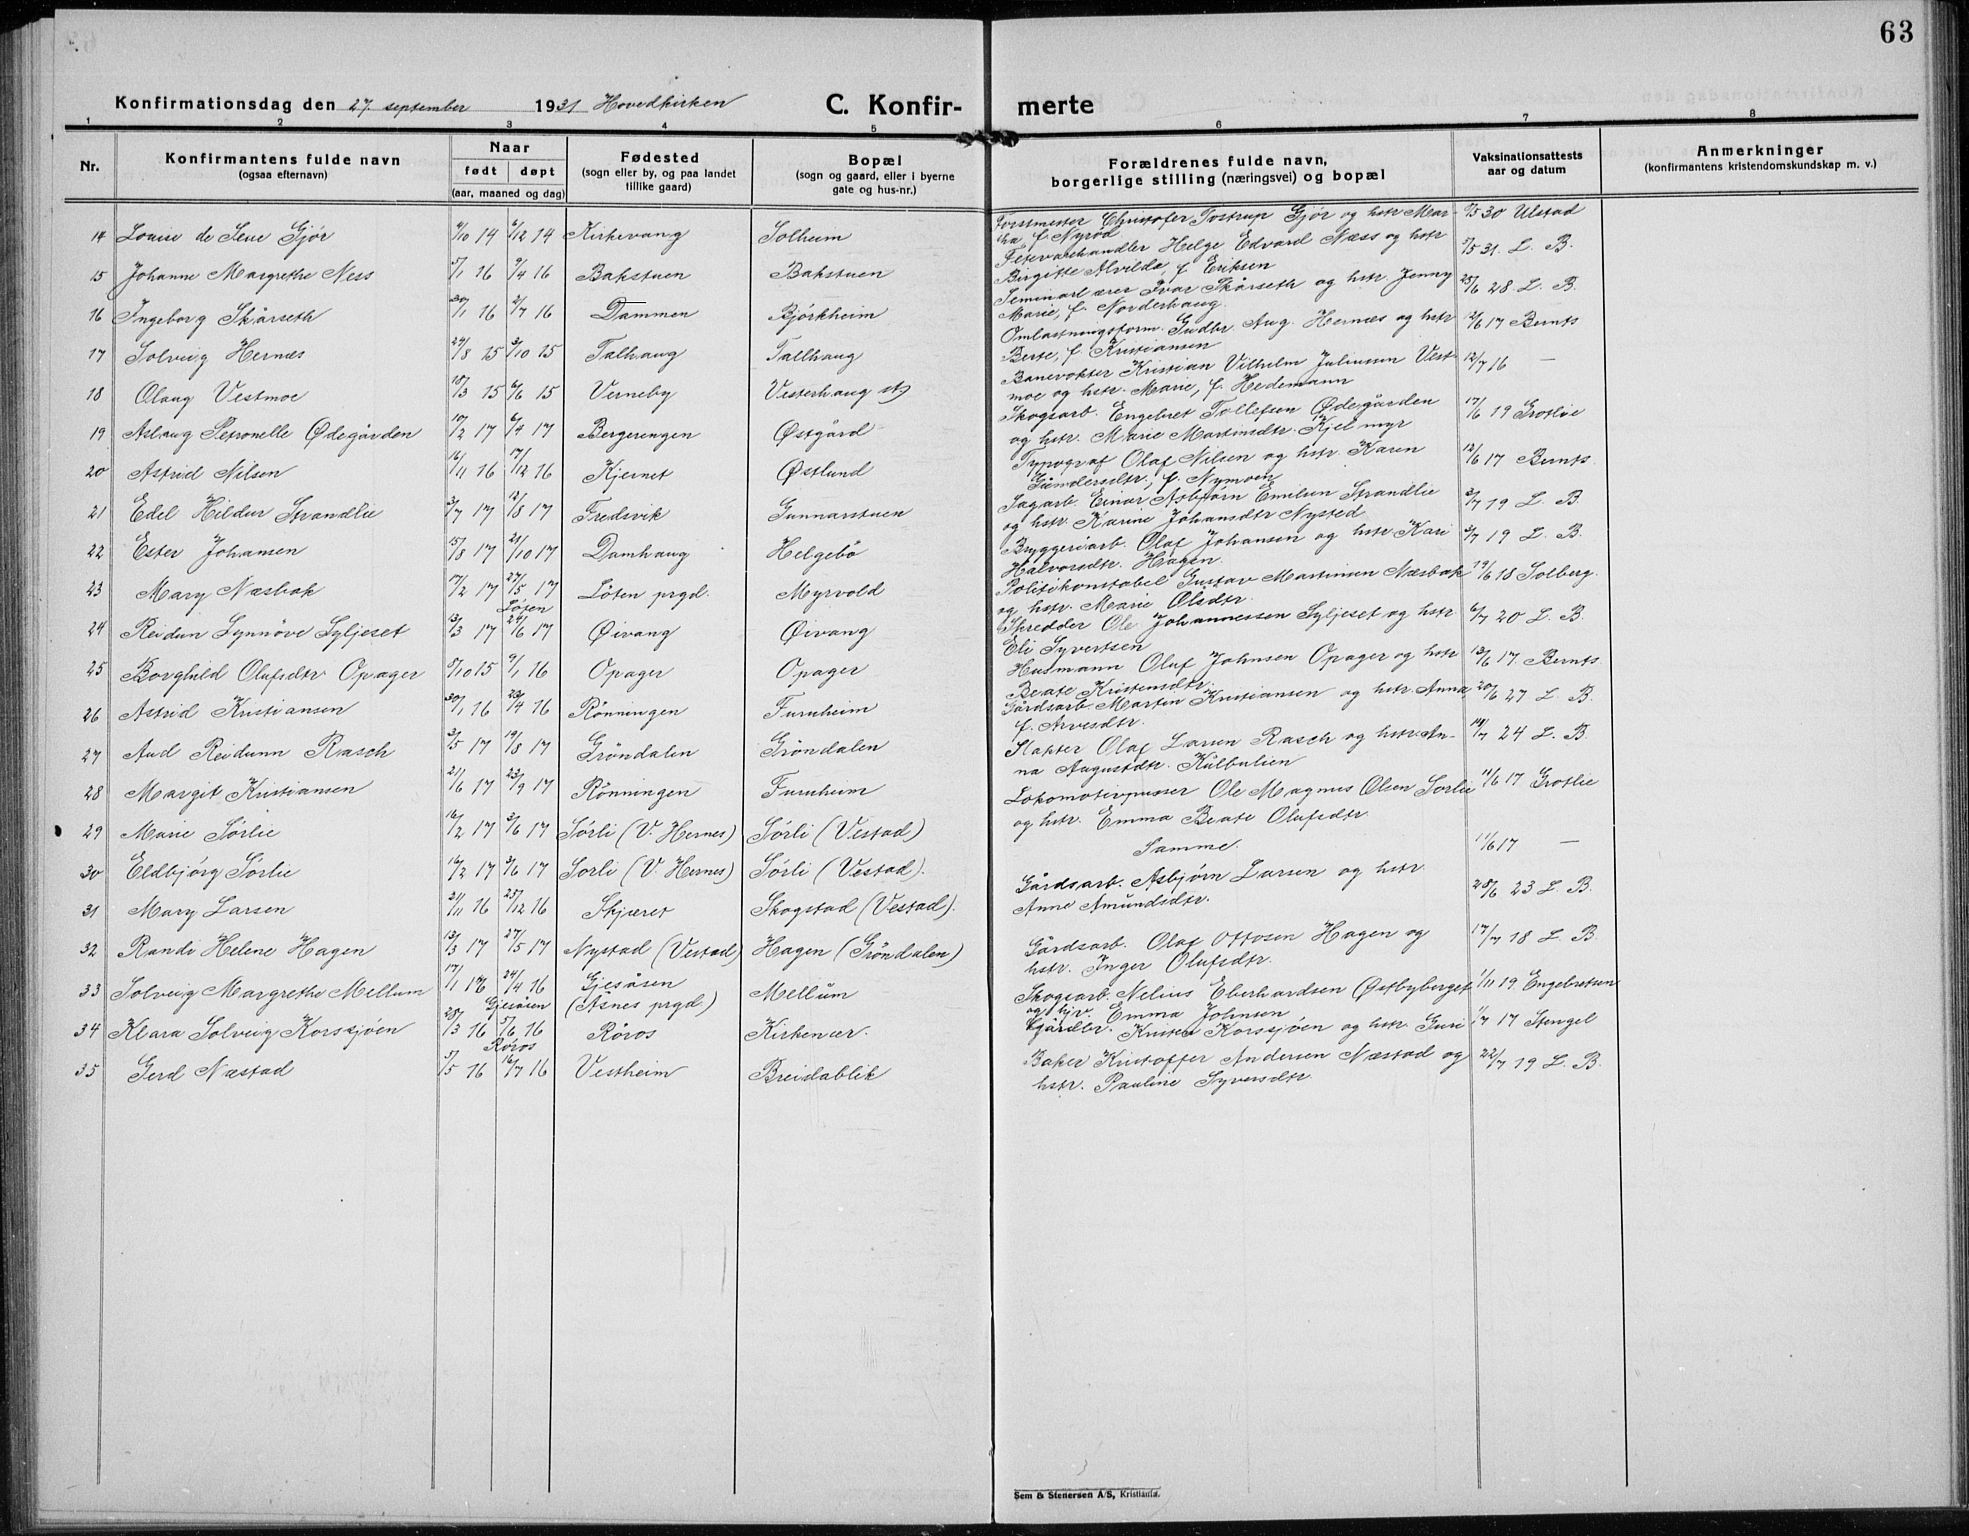 63
Konfirmationsdag den 27. september 1931 Hovedkirken C. Konfir- merte
1 2 3 4 5 6 7 8
Nr. Konfirmantens fulde navn (ogsaa efternavn) Naar født døpt (aar, maaned og dag) Fødested (sogn eller by, og paa landet tillike gaard) Bopæl (sogn og gaard, eller i byerne gate og hus-nr.) Forældrenes fulde navn, borgerlige stilling (næringsvei) og bopæl Vaksinationsattests aar og datum Anmerkninger (konfirmantens kristendomskundskap m. v.)
14 Louise de Seue Gjør 4/10 14 6/12 14 Kirkevang Solheim Forstmester Christofer Tostrup Gjør og hstr Mar-
tha, f. Nyrød 7/5 30 Ulstad
15 Johanne Margrethe Ness 5/1 16 9/4 16 Bakstuen Bakstuen Fetevarehandler Helge Edvard Næss og hstr
Birgitte Alvilde, f. Eriksen 5/5 31. L. B.
16 Ingeborg Skårseth 30/1 16 2/7 16 Dammen Bjørkheim Seminarlærer Ivar Skårseth og hstr Jenny
Marie, f. Norderhaug. 25/6 28 L. B.
17 Solveig Hernes 29/8 15 3/10 15 Talhaug Tallhaug Omlastningsform. Gudbr. Aug. Hernæs og hstr
Berte, f. Kristiansen 2/6 17 Bernts
18 Olaug Vestmoe 18/3 15 6/6 15 Verneby Vesterhaug st. Banevokter Kristian Vilhelm Juliussen Vest-
moe og hstr. Marie, f. Hedemann 12/7 16 —
19 Aslaug Petronelle Ødegården 10/2 17 6/4 17 Bergerengen Østgård Skogsarb. Engebret Tollefsen Ødegården
og hstr. Marie Martinsdtr. Kjelmyr 17/6 19 Grotlie
20 Astrid Nilsen 16/11 16 17/12 16 Kjernet Østlund Typograf Olaf Nilsen og hstr. Karen
Gundersdtr., f. Nymoen 12/6 17 Bernts.
21 Edel Hildur Strandlie 3/7 17 12/8 17 Fredsvik Gunnarstuen Sagarb. Einar Asbjørn Emilsen Strandlie
og hstr. Karine Johansdtr Nysted 3/7 19 L. B
22 Ester Johansen 15/8 17 21/10 17 Damhaug Helgebö Bryggeriarb. Olaf Johansen og hstr Kari
Halvorsdtr. Hagen. 3/7 19 L. B.
23 Mary Næsbak 17/2 17 27/5 17 Löten Löten prgd. Myrvold Politikonstabel Gustav Martinsen Næsbak
og hstr. Marie Olsdtr. 19/6 18 Solberg.
24 Reidun Synnöve Syljeset 13/3 17 24/6 17 Øivang Øivang Skredder Ole Johannessen Syljeset og hstr
Eli Syvertsen 6/7 20 L. B.
25 Borghild Olafsdtr Opager 8/10 15 9/1 16 Opager Opager Husmann Oluf Johnsen Opager og hstr
Beate Kristensdtr. 13/6 17. Bernts.
26 Astrid Kristiansen 30/1 16 23/4 16 Rönningen Furuheim Gårdsarb. Martin Kristiansen og hstr. Anna,
f. Arvesdtr. 20/6 27 L. B.
27 Aud Reidunn Rasch 3/5 17 19/8 17 Gröndalen Gröndalen Slakter Olaf Larsen Rasch og hstr. An-
na Augustdtr. Kulbulien 14/7 24 L. B
28 Margit Kristiansen 21/6 17 23/9 17 Rönningen Furuheim
29 Marie Sörlie 16/2 17 3/6 17 Sørli (V. Hernes) Sørli (Vestad) Lokomotivpusser Ole Magnus Olsen Sorlie
og hstr. Emma Beate Olufsdtr 11/6 17 Grotlie
30 Eldbjörg Sörlie 16/2 17 3/6 17 Sorli (V. Hernes) Sørli (Vestad). Samme. 11/6 17 —
31 Mary Larsen 21/11 16 25/12 16 Skjæret Skogstad (Vestad). Gårdsarb. Asbjørn Larsen og hstr
Anne Amundsdtr. 28/6 23 L. B.
32 Randi Helene Hagen 13/3 17 27/5 17 Nystad (Vestad) Hagen (Gröndalen) Gårdsarb. Olaf Ottosen Hagen og
hstr. Inger Olufsdtr. 17/7 18 L. B
33 Solveig Margrethe Mellum 17/1 16 24/4 16 Gjesåsen Gjesåsen (Åsnes prgd.) Mellum Skogsarb. Nelius Eberhardsen Østbyberget
og hjv. Emma Johnsen 1/11 19. Engebretsen
34 Klara Solveig Korssjöen 28/3 16 5/6 16 Röros Röros Kirkenær. Gårdbr. Kristen Korssjöen og hstr Guri 1/7 17 Stengel
35 Gerd Næstad 5/5 16 16/7 16 Vestheim Breidablik Baker Kristoffer Andersen Næstad og
hstr. Pauline Syversdtr 22/7 19 L. B.
Sem & Stenersen A/S, Kristiania.